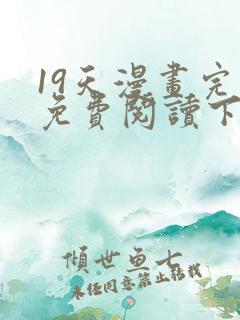 19天漫畫完
免費閱讀下
傾世魚七
未經同意禁止轉載